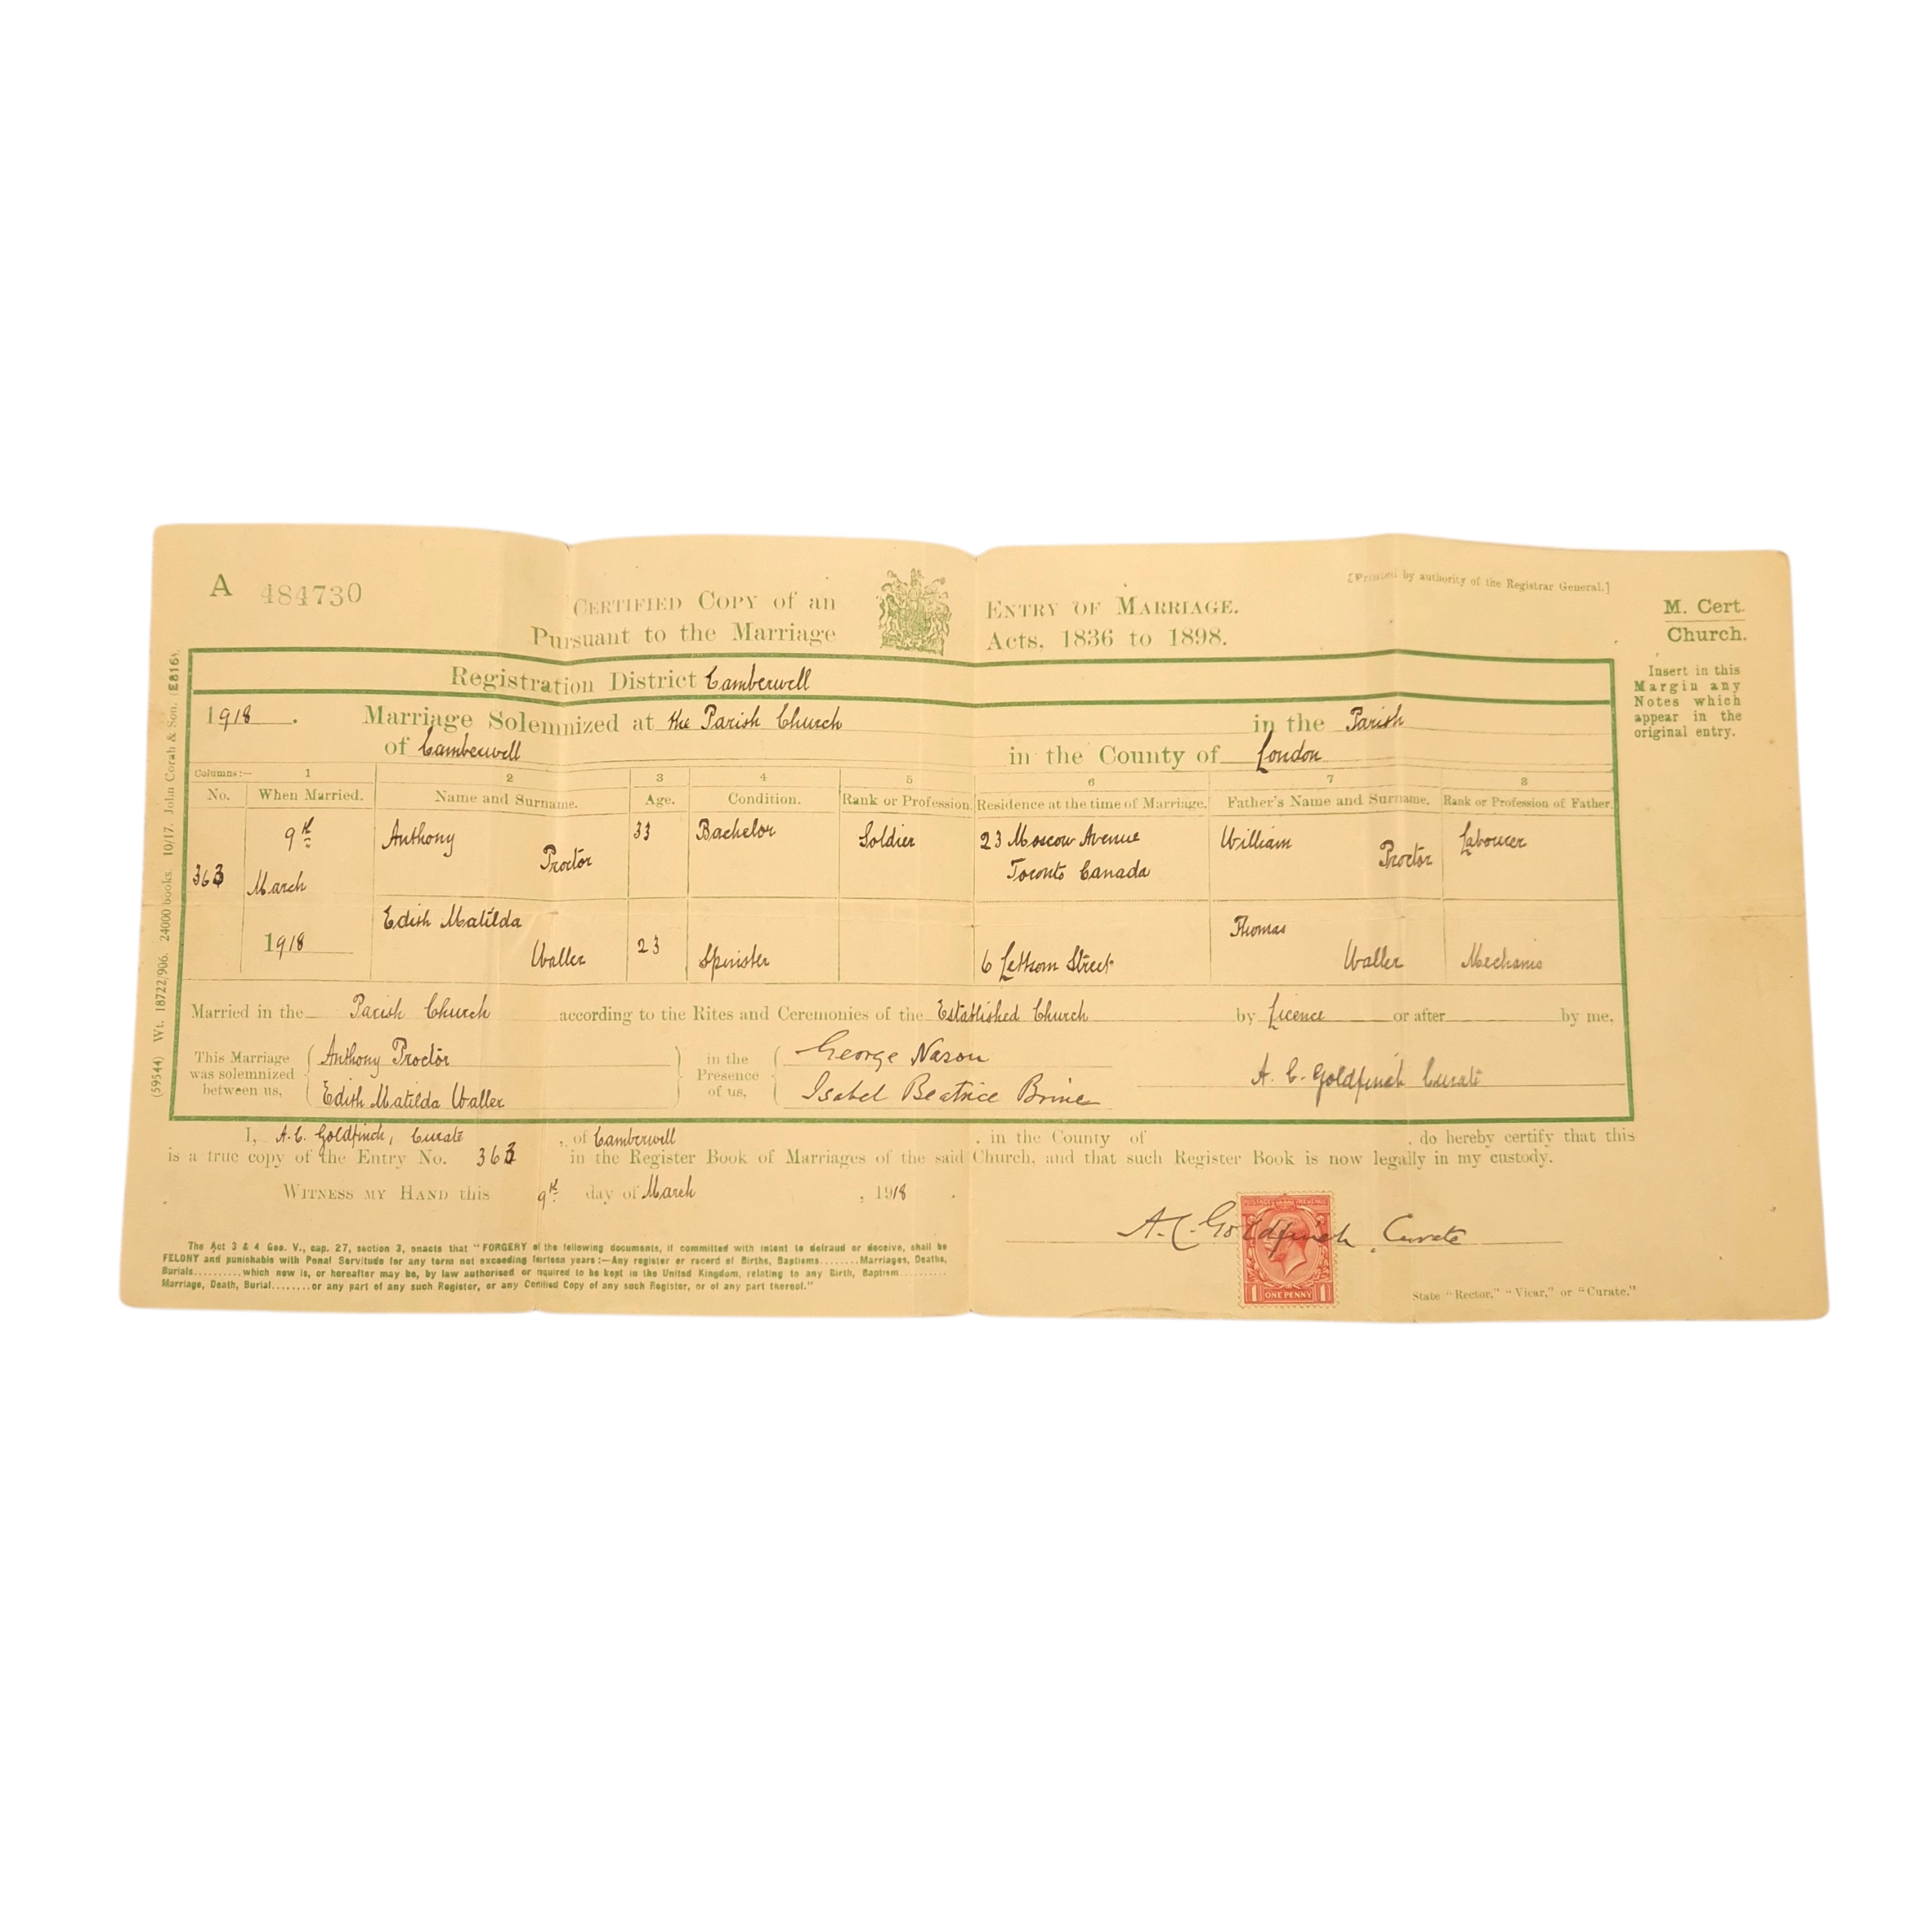 A 484730
CERTIFIED COPY of an ENTRY OF MARRIAGE.
Pursuant to the Marriage Acts, 1836 to 1898.
[Printed by authority of the Registrar General.]
M. Cert.
Church.
Insert in this
Margin any
Notes which
appear in the
original entry.
(59544) Wt. 18722/906. 24000 books. 10/17. John Corah & Son. (E816).
Registration District Camberwell
1918. Marriage Solemnized at the Parish Church in the Parish
of Camberwell in the County of London
Columns:— 1 2 3 4 5 6 7 8
No. When Married. Name and Surname. Age. Condition. Rank or Profession. Residence at the time of Marriage. Father's Name and Surname. Rank or Profession of Father.
363 9th March 1918
Anthony Proctor 33 Bachelor Soldier 23 Moscow Avenue Toronto Canada William Proctor Labourer
Edith Matilda Waller 23 Spinster 6 Lettsom Street Thomas Waller Mechanic
Married in the Parish Church according to the Rites and Ceremonies of the Established Church by Licence or after by me,
This Marriage was solemnized between us, Anthony Proctor Edith Matilda Waller
in the Presence of us, George Nason Isabel Beatrice Brine
A. C. Goldfinch Curate
I, A. C. Goldfinch, Curate, of Camberwell, in the County of , do hereby certify that this
is a true copy of the Entry No. 363 in the Register Book of Marriages of the said Church, and that such Register Book is now legally in my custody.
WITNESS MY HAND this 9th day of March, 1918.
A. C. Goldfinch, Curate
POSTAGE REVENUE
1 ONE PENNY 1
State "Rector," "Vicar," or "Curate."
The Act 3 & 4 Geo. V., cap. 27, section 3, enacts that "FORGERY of the following documents, if committed with intent to defraud or deceive, shall be
FELONY and punishable with Penal Servitude for any term not exceeding fourteen years:—Any register or record of Births, Baptisms........Marriages, Deaths,
Burials..........which now is, or hereafter may be, by law authorised or required to be kept in the United Kingdom, relating to any Birth, Baptism..........
Marriage, Death, Burial........or any part of any such Register, or any Certified Copy of any such Register, or of any part thereof."